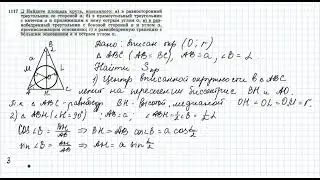 1117 Найдите площадь круга, вписанного: а) в равносторонний
треугольник со стороной а; б) в прямоугольный треугольник
с катетом а и прилежащим к нему острым углом α; в) в рав-
нобедренный треугольник с боковой стороной а и углом α,
противолежащим основанию; г) в равнобедренную трапецию с
большим основанием а и острым углом α.
Дано: вписан окр (O; r)
△ABC (AB = BC), AB = a, ∠B = α
Найти: Sкр
1) Центр вписанной окружности в △ABC
лежит на пересечении биссектрис BH и AO.
т.к △ABC - равнобедр BH - высотой, медианой OH = OL =
2) △ABH (∠H = 90°) AB = a; ∠B = α/2
cos ∠B = BH/AB ⇒ BH = AB cos ∠B = a cos α/2
sin ∠B = AH/AB ⇒ AH = a sin α/2
3